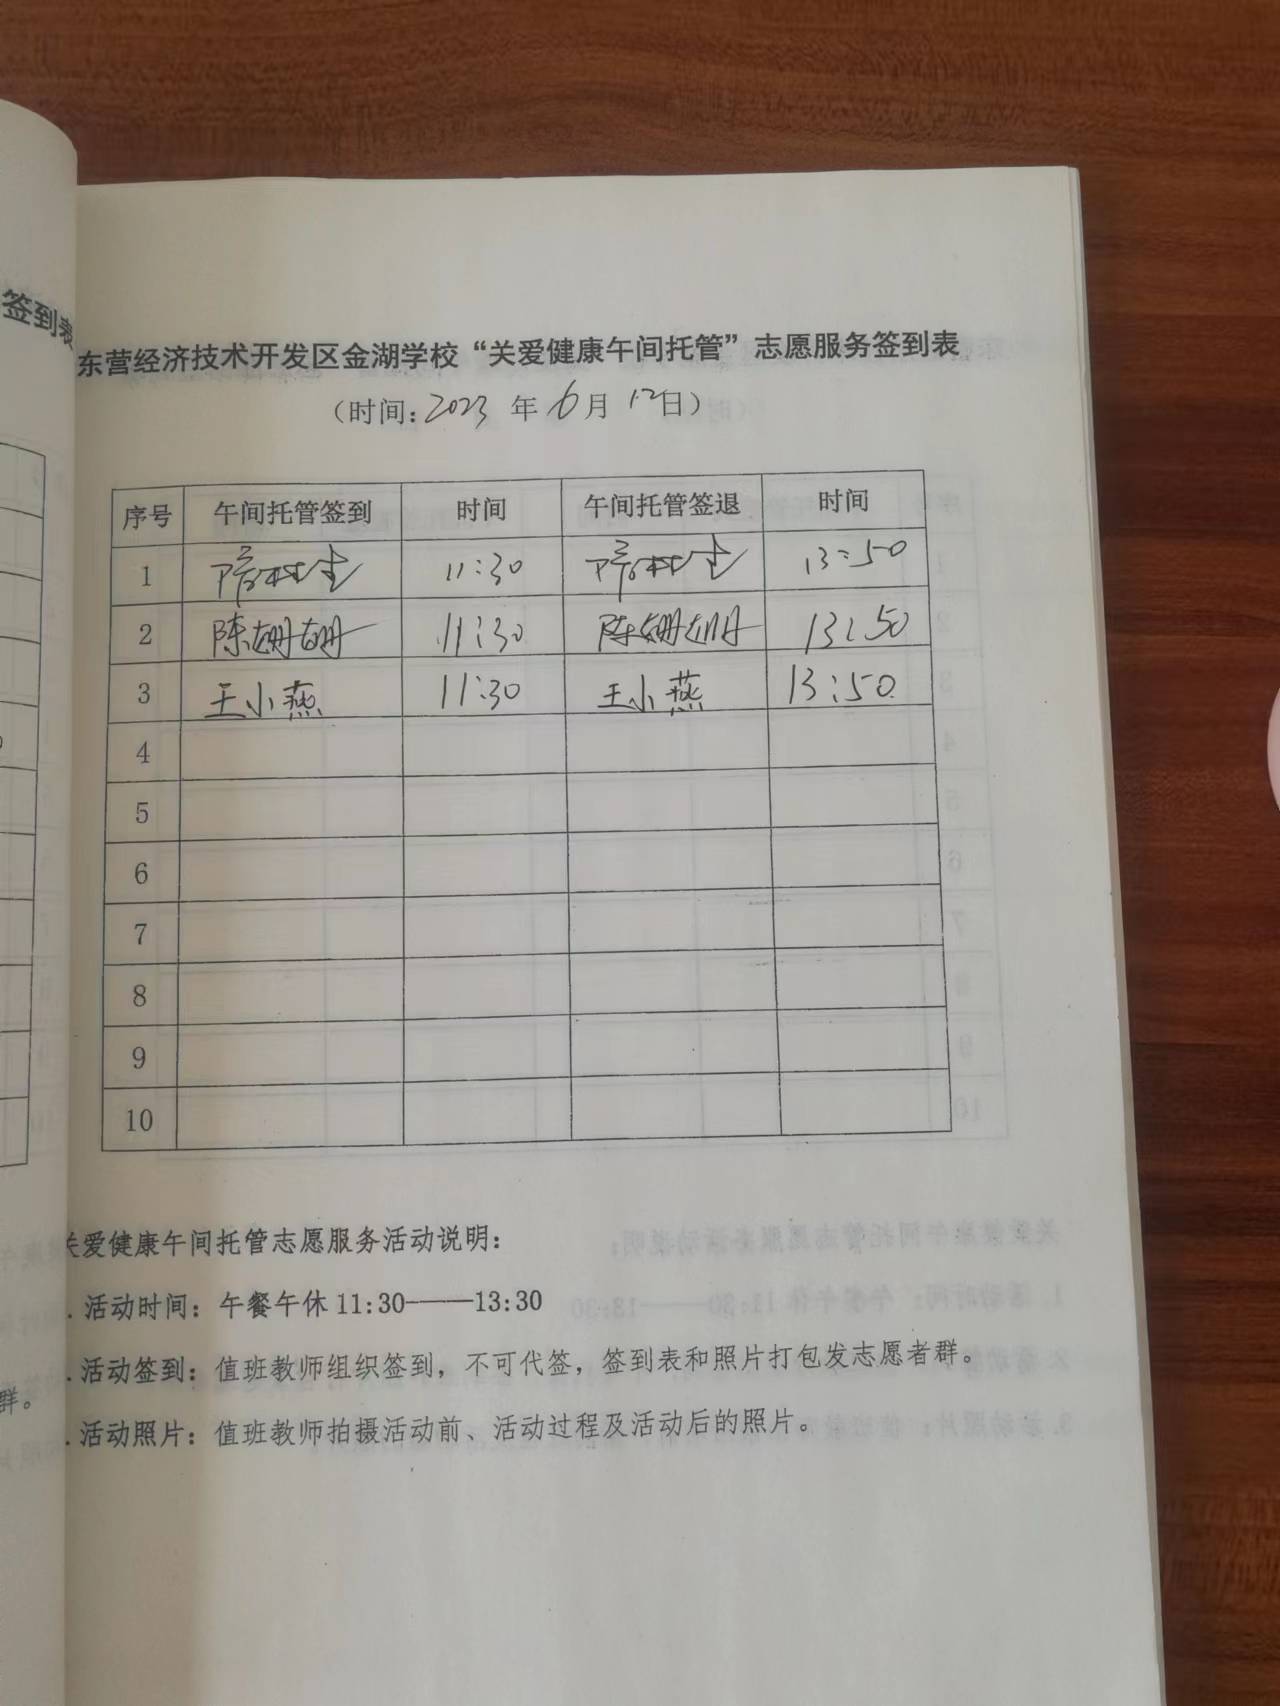 签到表
东营经济技术开发区金湖学校“关爱健康午间托管”志愿服务签到表
（时间：2023 年 6 月 12日）
序号 午间托管签到 时间 午间托管签退 时间
1 11:30 13:50
2 陈姗姗 11:30 陈姗姗 13:50
3 王小燕 11:30 王小燕 13:50
4
5
6
7
8
9
10
关爱健康午间托管志愿服务活动说明：
. 活动时间：午餐午休 11:30——13:30
. 活动签到：值班教师组织签到，不可代签，签到表和照片打包发志愿者群。
群。
. 活动照片：值班教师拍摄活动前、活动过程及活动后的照片。